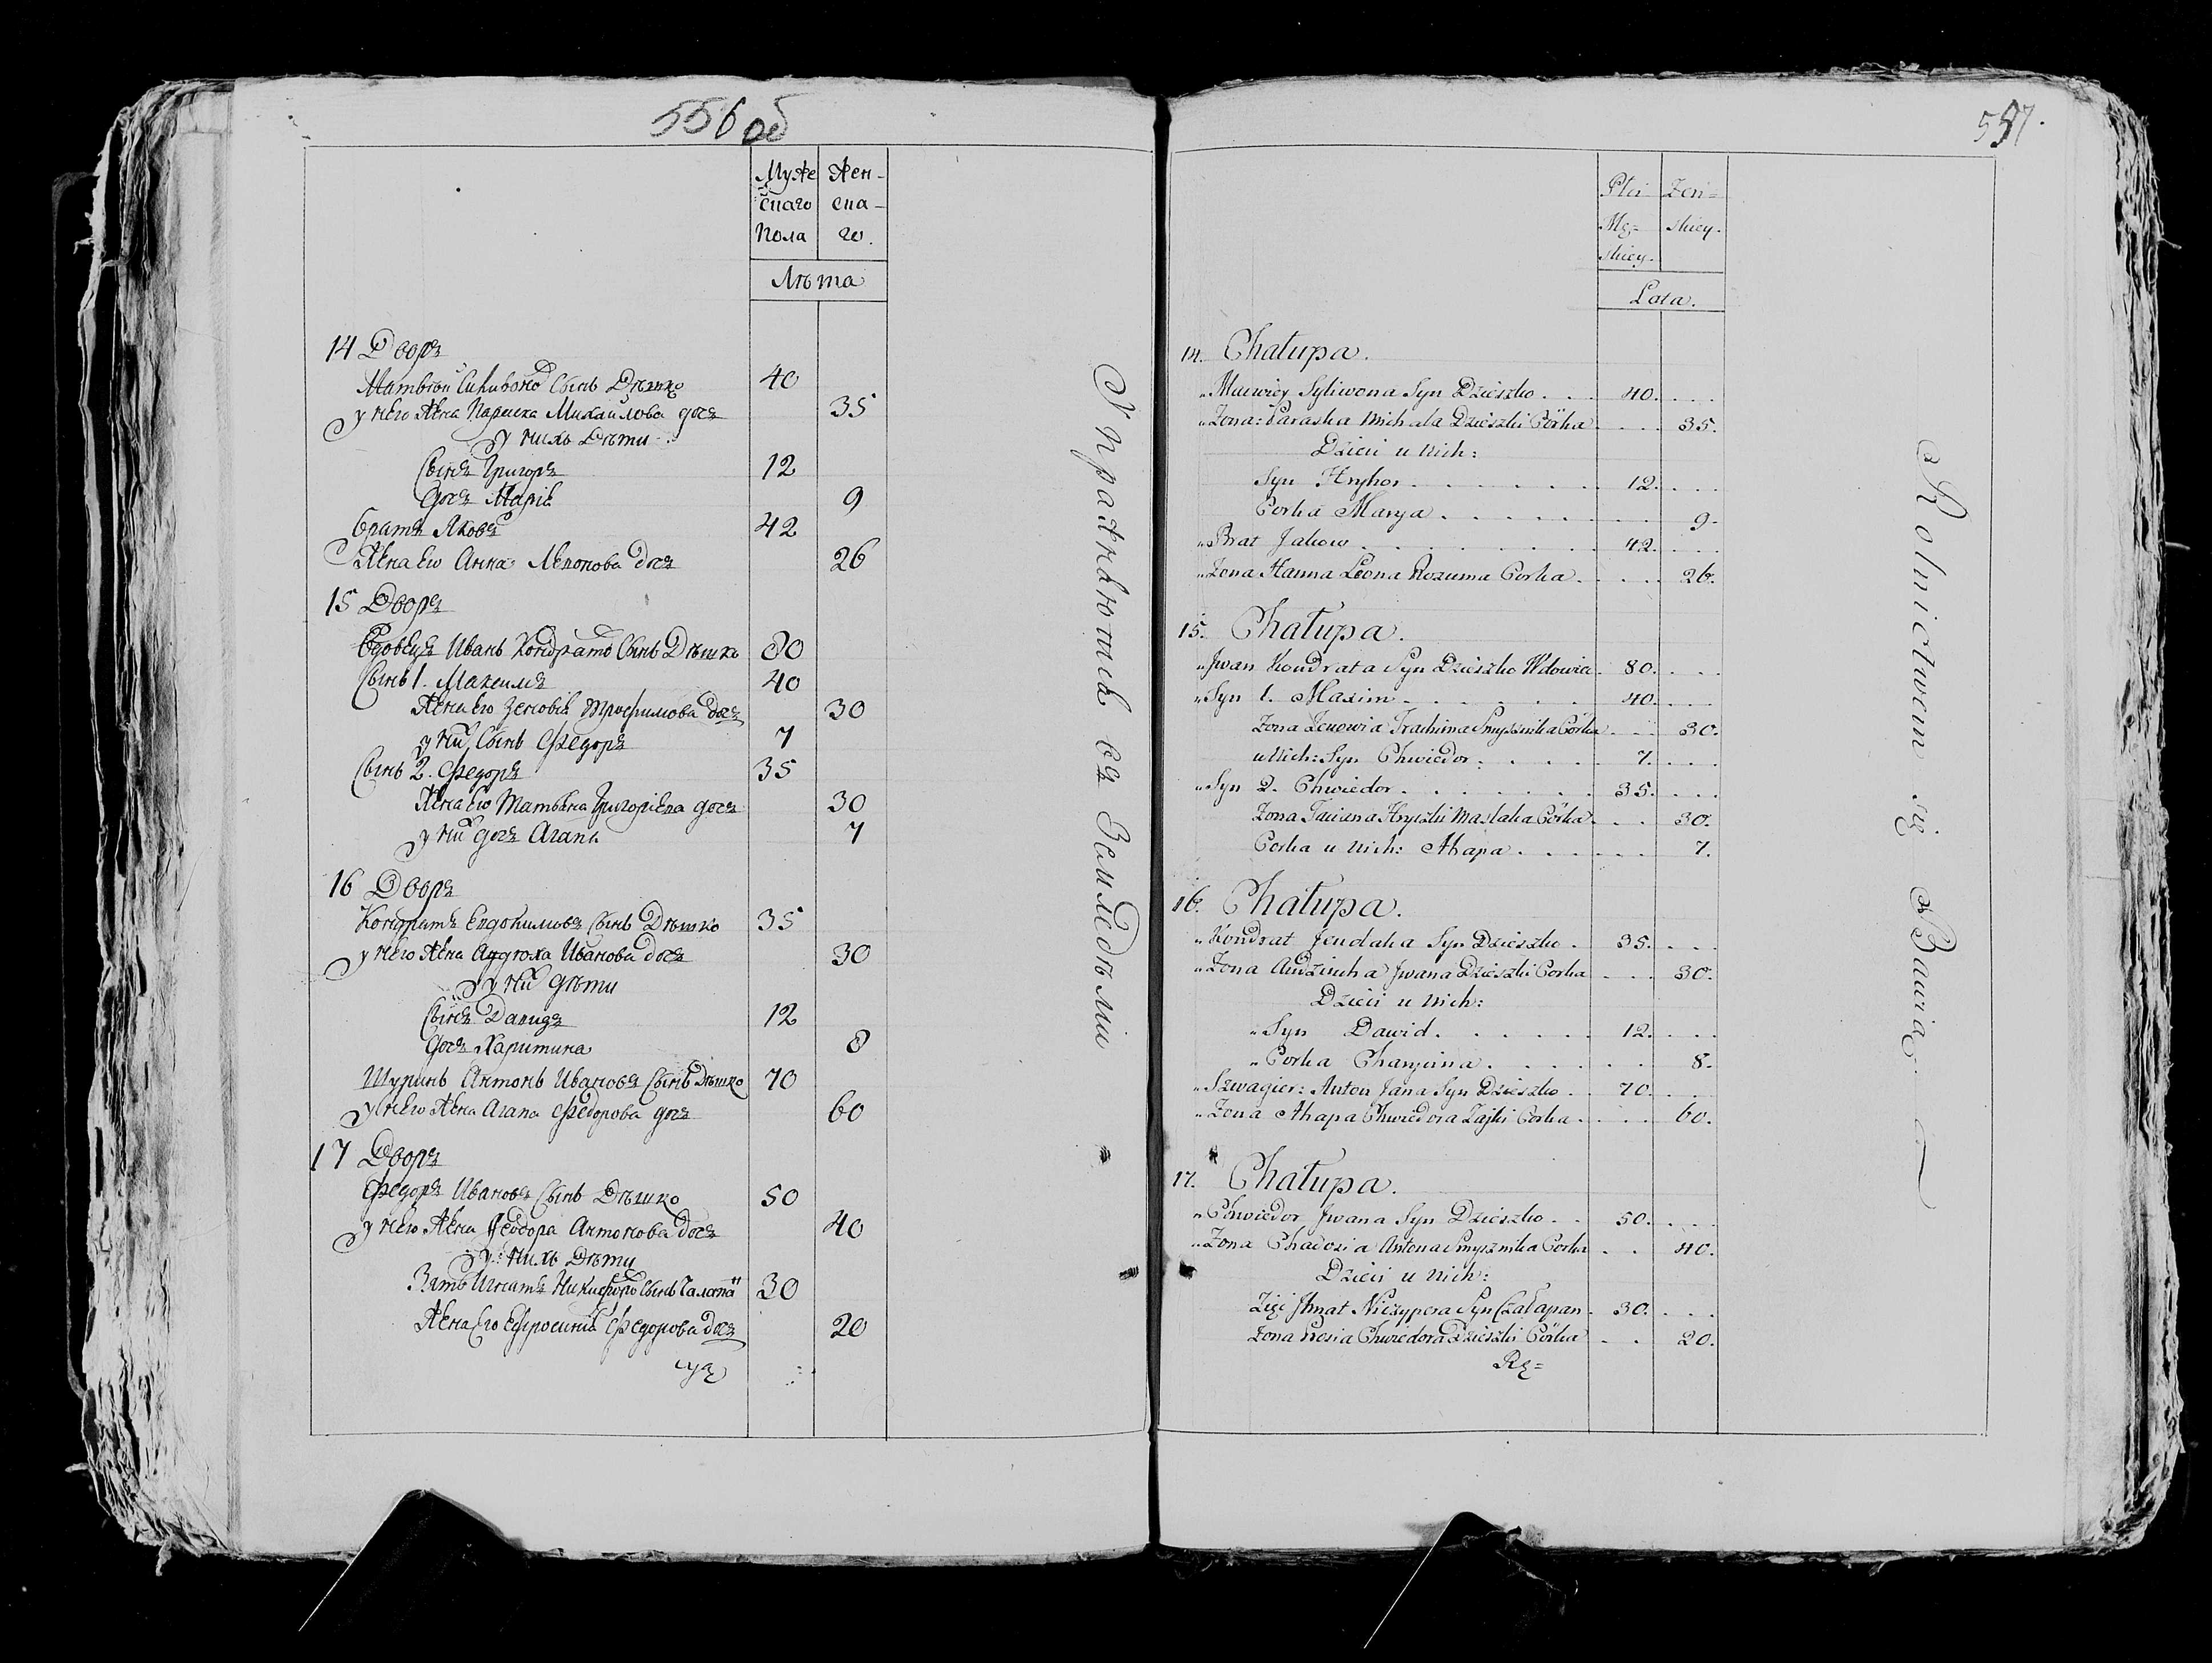 556 об
Муже Жен-
скаго ска-
Пола го.
Лѣта
14 Дворъ
Матвѣй Силивоно Сынъ Дѣшко 40
у него Жена Параска Михайлова дочъ 35
у нихъ Дѣти
Сынъ Григоръ 12
дочъ Марія 9
братъ Яковъ 42
Жена его Анна Леонова дочъ 26
15 Дворъ
Вдовецъ Иванъ Кондрато Сынъ Дѣшко 80
Сынъ 1. Максимъ 40
Жена его Зеновія Трофимова дочъ 30
у них Сынъ Федоръ 7
Сынъ 2. Федоръ 35
Жена его Татьяна Григоріева дочъ 30
у них дочъ Агапа 7
16 Дворъ
Кондратъ Евдокимовъ Сынъ Дѣшко 35
у него Жена Иванова дочъ 30
у них дѣти
Сынъ Давидъ 12
дочъ Харитина 8
Шуринъ Антонъ Ивановъ Сынъ Дѣшко 70
у него Жена Агапа Федорова дочъ 60
17 Дворъ
Федоръ Ивановъ Сынъ Дѣшко 50
у него Жена Феодора Антонова дочъ 40
у нихъ Дѣти
Зять Игнатъ Никифоро Сынъ 30
Жена Его Ефросинія Федорова дочъ 20
Упражняются въ Земледѣлiи
557.
Płci Zeń=
Mę= skiey.
skiey.
Lata.
14. Chałupa.
„ Maciwiey Syliwona Syn Dzieszko 40.
„ Zona: Paraska Michała Dzieszki Córka 35.
Dzieci u Nich:
Syn Hryhor 12.
Corka Marya 9.
„ Brat Jakow 42.
„ Zona Hanna Leona Rozuma Corka 26.
15. Chałupa.
„ Jwan Kondrata Syn Dzieszko Wdowiec 80.
„ Syn 1. Maxim 40.
Zona Zenowia Trachima Smysznika Córka 30.
u Nich: Syn Chwiedor 7.
„ Syn 2. Chwiedor 35.
Zona Taciana Hryszki Maslaka Córka 30.
Corka u Nich: Ahapa 7.
16. Chałupa.
„ Kondrat Jeudaka Syn Dzieszko 35.
„ Zona Audziucha Jwana Dzieszki Corka 30.
Dzieci u Nich:
„ Syn Dawid 12.
„ Corka Charycina 8.
„ Szwagier: Anton Jana Syn Dzieszko 70.
„ Zona Ahapa Chwiedora Zajki Corka 60.
17. Chałupa.
„ Chwiedor Jwana Syn Dzieszko 50.
„ Zona Chadosia Antona Smysznika Corka 40.
Dzieci u Nich:
Zięć Jhnat Niczypera Syn Czałapan 30.
Zona Rosia Chwiedora Dzieszki Córka 20.
Rę=
Rolnictwem się Bawią.